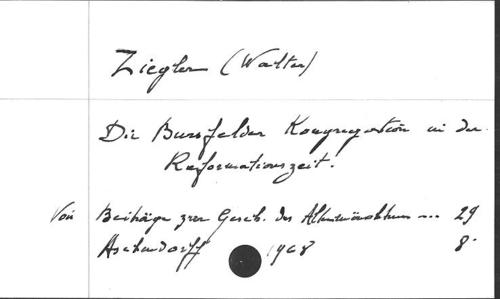 Ziegler (Walter)
Die Bursfelder Kongregation in der
Reformationszeit.
Voir Beiträge zur Gesch. des Altmönchtums ... 29
Aschendorff 1968 8.